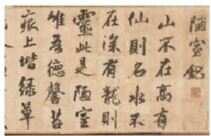 陋室銘
山不在高有
仙則名水不
在深有龍則
靈此是陋室
唯吾德馨苔
痕上堦綠草